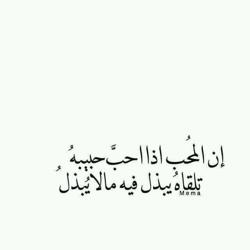 إن المحُب اذا احبَّ حبيبهُ
تلقاهُ يبذل فيه مالا يُبذلُ
Mema